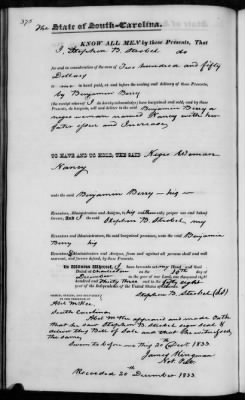 The State of South-Carolina.
KNOW ALL MEN by these Presents, That
I, Stephen B. Strobel do
for and in consideration of the sum of Two hundred and fifty
Dollars
to me in hand paid, at and before the sealing and delivery of these Presents,
by Benjamin Berry
(the receipt whereof I do hereby acknowledge) have bargained and sold, and by these
Presents, do bargain, sell and deliver to the said Benjamin Berry a
negro woman named Nancy with her
future issue and Increase
TO HAVE AND TO HOLD, THE SAID Negro Woman
Nancy
unto the said Benjamin Berry his
Executors, Administrators and Assigns, to his and their only proper use and behoof
forever. And I the said Stephen B. Strobel, my
Executors and Administrators, the said bargained premises, unto the said Benjamin
Berry his
Executors, Administrators and Assigns, from and against all persons shall and will
warrant, and forever defend, by these Presents.
In Witness Whereof, I have hereunto set my Hand and Seal
Dated at Charleston on the day of
December in the year of our Lord, one thousand eight
hundred and Thirty Three and in the fifty eight
year of the Independence of the United States of America.
SIGNED, SEALED, AND DELIVERED
IN THE PRESENCE OF
Stephen B. Strobel (LS)
South Carolina
and made Oath
that he saw Stephen B. Strobel sign seal &
deliver this Bill of Sale and that he witnessed
the same.
Sworn to before me this 20 Dec 1833.
Not. Pub.
Recorded 20th December 1833